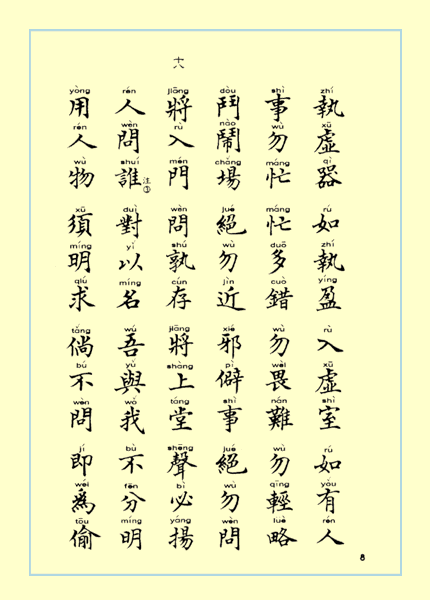 十八
zhí xū qì rú zhí yíng rù xū shì rú yǒu rén
執虛器 如執盈 入虛室 如有人
shì wù máng máng duō cuò wù wèi nán wù qīng luè
事勿忙 忙多錯 勿畏難 勿輕略
dòu nào chǎng jué wù jìn xié pì shì jué wù wèn
鬥鬧場 絕勿近 邪僻事 絕勿問
jiāng rù mén wèn shú cún jiāng shàng táng shēng bì yáng
將入門 問孰存 將上堂 聲必揚
rén wèn shuí duì yǐ míng wú yǔ wǒ bù fēn míng
人問誰 注③ 對以名 吾與我 不分明
yòng rén wù xū míng qiú tǎng bú wèn jí wéi tōu
用人物 須明求 倘不問 即爲偷
8